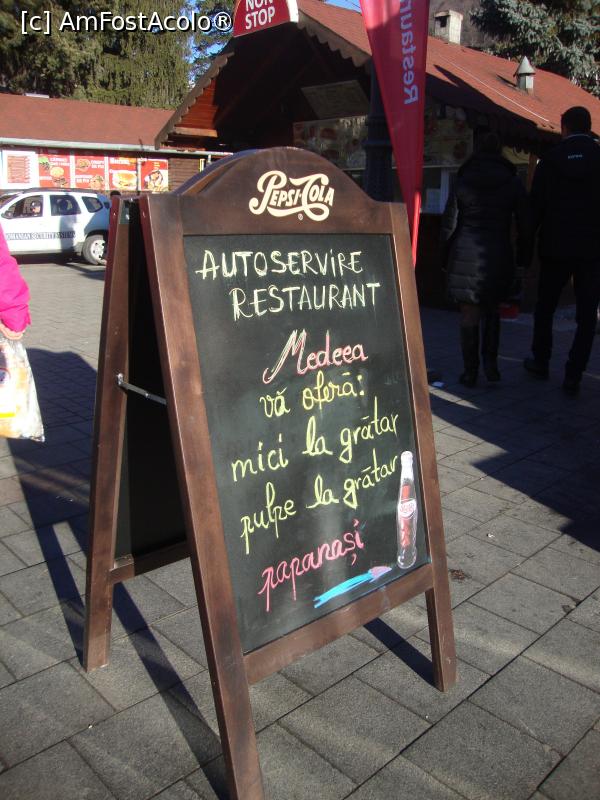 [c] AmFostAcolo®
NON
STOP
Restaurant
PEPSI-COLA
AUTOSERVIRE
RESTAURANT
Medeea
vă oferă:
mici la grătar
pulpe la grătar
papanași